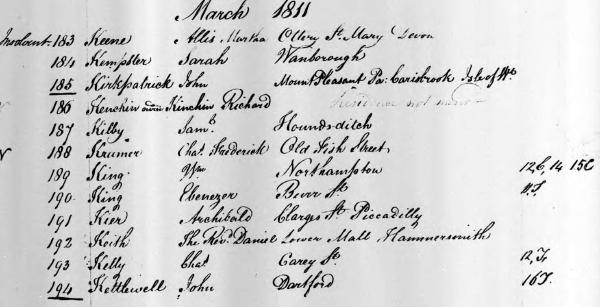 March 1811
Insolvent 183 Keene Allis Martha Ottery St. Mary Devon
184 Kempster Sarah Wanborough
185 Kirkpatrick John Mount Pleasant Pa: Carisbrook Isle of Wt.
186 Kenchin Kinchin Richard
187 Kilby Saml. Houndsditch
188 Krumer Chas. Frederick Old Fish Street
189 King Wm Northampton 12 C, 14 15C
190 King Ebenezer Burr St.
191 Kier Archibald Clarges St. Piccadilly
192 Keith The Revd. Daniel Lower Mall Hammersmith
193 Kelly Chas. Carey St.
194 Kettlewell John Dartford